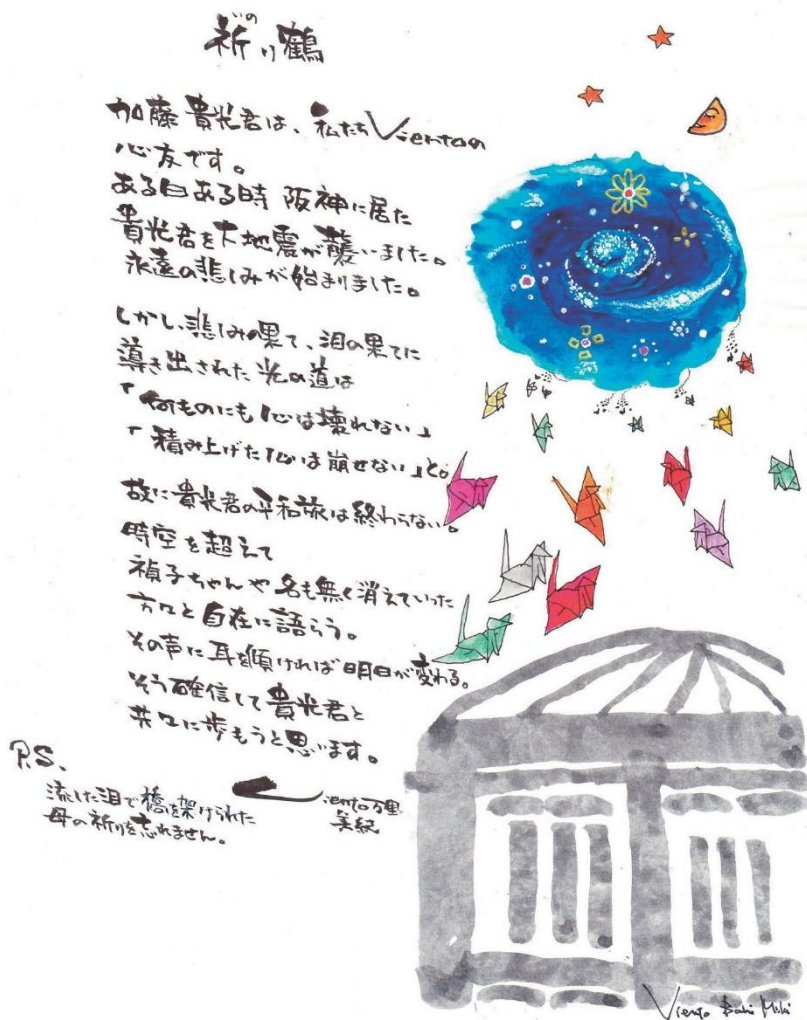 いの
祈り鶴
加藤貴光君は、私たちVientoの
心友です。
ある日ある時 阪神に居た
貴光君を大地震が襲いました。
永遠の悲しみが始まりました。
しかし、悲しみの果て、泪の果てに
導き出された光の道は
「何ものにも心は壊れない」
「積み上げた心は崩せない」と。
故に貴光君の平和旅は終わらない。
時空を超えて
禎子ちゃんや名も無く消えていった
方々と自在に語らう。
その声に耳を傾ければ明日が変わる。
そう確信して貴光君と
共々に歩もうと思います。
P.S.
流した泪で橋を架けられた
母の祈りを忘れません。
Viento万里
美紀
Viento Bali Miki